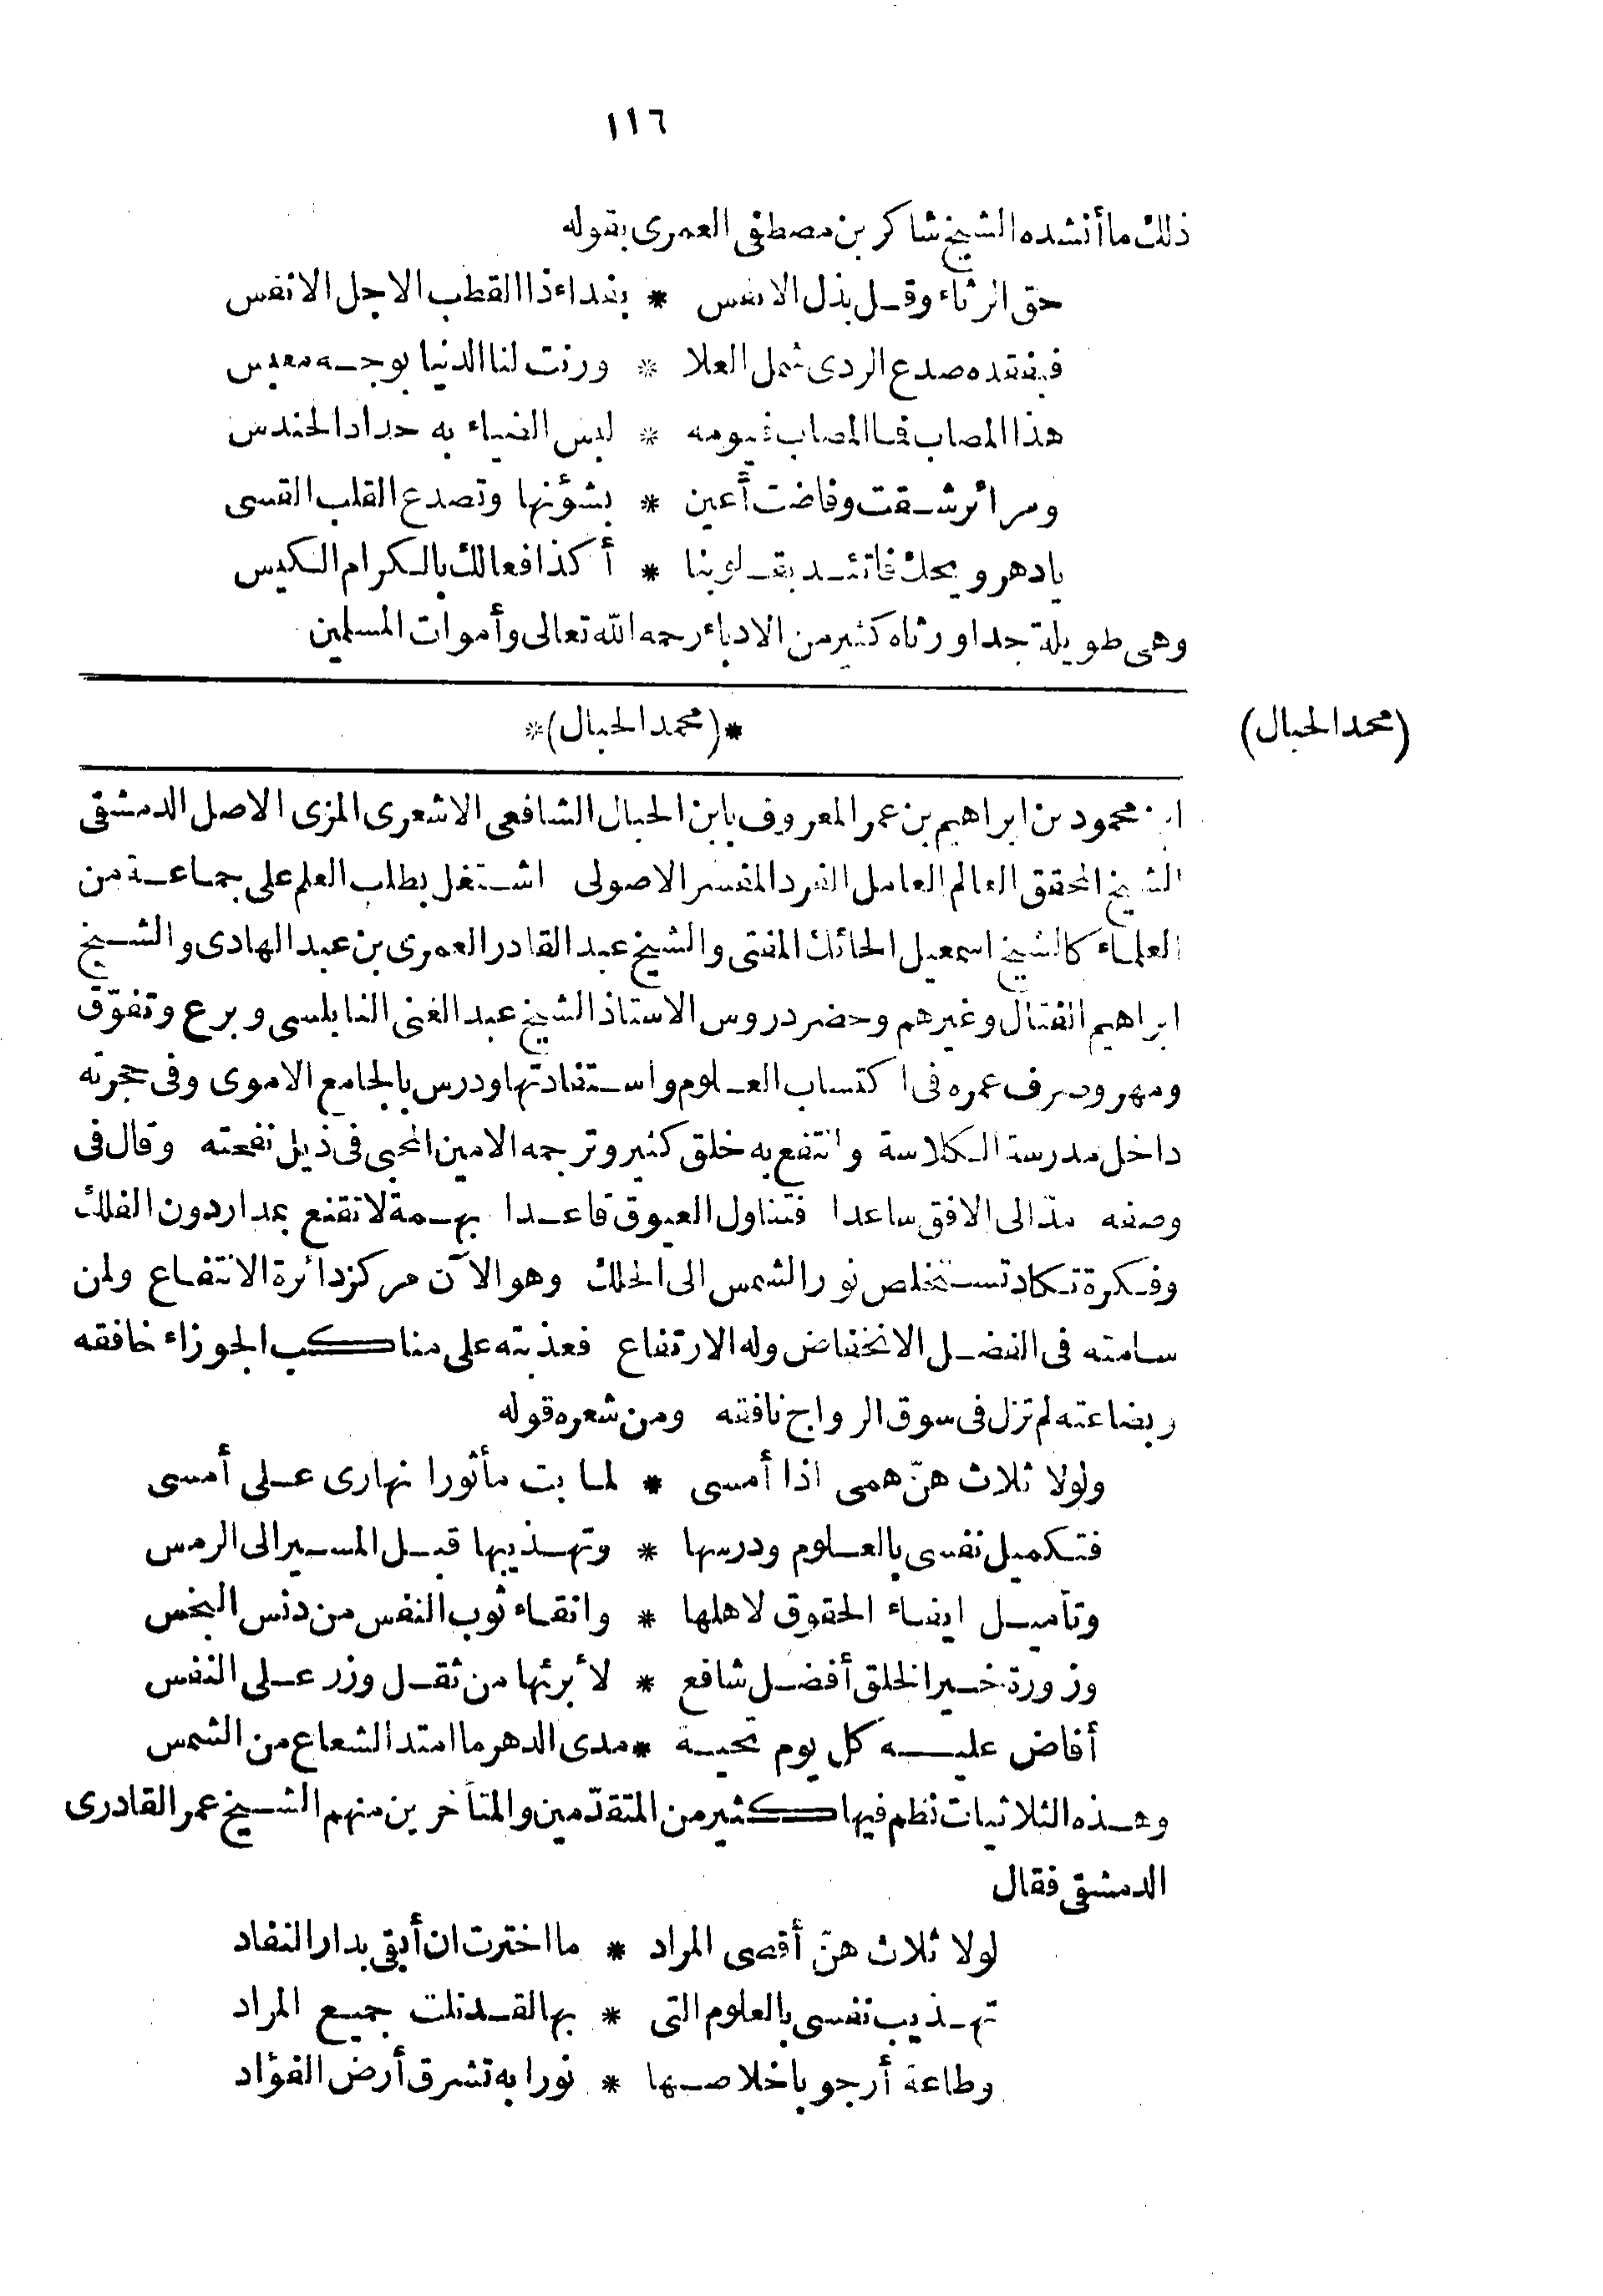 ١١٦
ذلك ما أنشده الشيخ شاكر بن مصطفى العمرى بقوله
حق الرثاء وقل بذل الانفس * بفداء ذا القطب الاجل الانفس
فبفقده صدع الردى شمل العلا * ورنت لنا الدنيا بوجه معبس
هذا المصاب فما المصاب فيومه * لبس الضياء به حداد الحندس
ومرائر شقت وفاضت أعين * بشؤنها وتصدع القلب القسى
يا دهر ويحك فاتئد بقلوبنا * أكذا فعالك بالكرام الكيس
وهى طويلة جدا ورثاه كثير من الادباء رحمه الله تعالى وأموات المسلمين
*(محمد الحبال)*
(محمد الحبال)
ابن محمود بن ابراهيم بن عمر المعروف بابن الحبال الشافعى الاشعرى المزى الاصل الدمشقى
الشيخ المحقق العالم العامل الفرد المفسر الاصولى اشتغل بطلب العلم على جماعة من
العلماء كالشيخ اسمعيل الحائك المفتى والشيخ عبد القادر العمرى بن عبد الهادى والشيخ
ابراهيم الفتال وغيرهم وحضر دروس الاستاذ الشيخ عبد الغنى النابلسى وبرع وتفوّق
ومهر وصرف عمره فى اكتساب العلوم واستفادتها ودرس بالجامع الاموى وفى حجرته
داخل مدرسة الكلاسة وانتفع به خلق كثير وترجمه الامين المحبى فى ذيل نفحته وقال فى
وصفه مدّ الى الافق ساعدا فتناول العيوق قاعدا بهمة لا تقنع بمدار دون الفلك
وفكرة تكاد تستخلص نور الشمس الى الحلك وهو الآن مركز دائرة الانتفاع ولمن
سامته فى الفضل الانخفاض وله الارتفاع فعذبته على مناكب الجوزاء خافقه
وبضاعته لم تزل فى سوق الرواج نافقه ومن شعره قوله
ولولا ثلاث هنّ همى اذا أمسى * لما بت مأثورا نهارى على أمسى
فتكميل نفسى بالعلوم ودرسها * وتهذيبها قبل المسير الى الرمس
وتأميل ايفاء الحقوق لاهلها * وانقاء ثوب النفس من دنس البخس
وزورة خير الخلق أفضل شافع * لأبرئها من ثقل وزر على النفس
أفاض عليه كل يوم تحية * مدى الدهر ما امتد الشعاع من الشمس
وهذه الثلاثيات نظم فيها كثير من المتقدّمين والمتأخرين منهم الشيخ عمر القادرى
الدمشقى فقال
لولا ثلاث هنّ أقصى المراد * ما اخترت ان أبقى بدار النفاد
تهذيب نفسى بالعلوم التى * بها لقد نلت جميع المراد
وطاعة أرجو باخلاصها * نورا به تشرق أرض الفؤاد